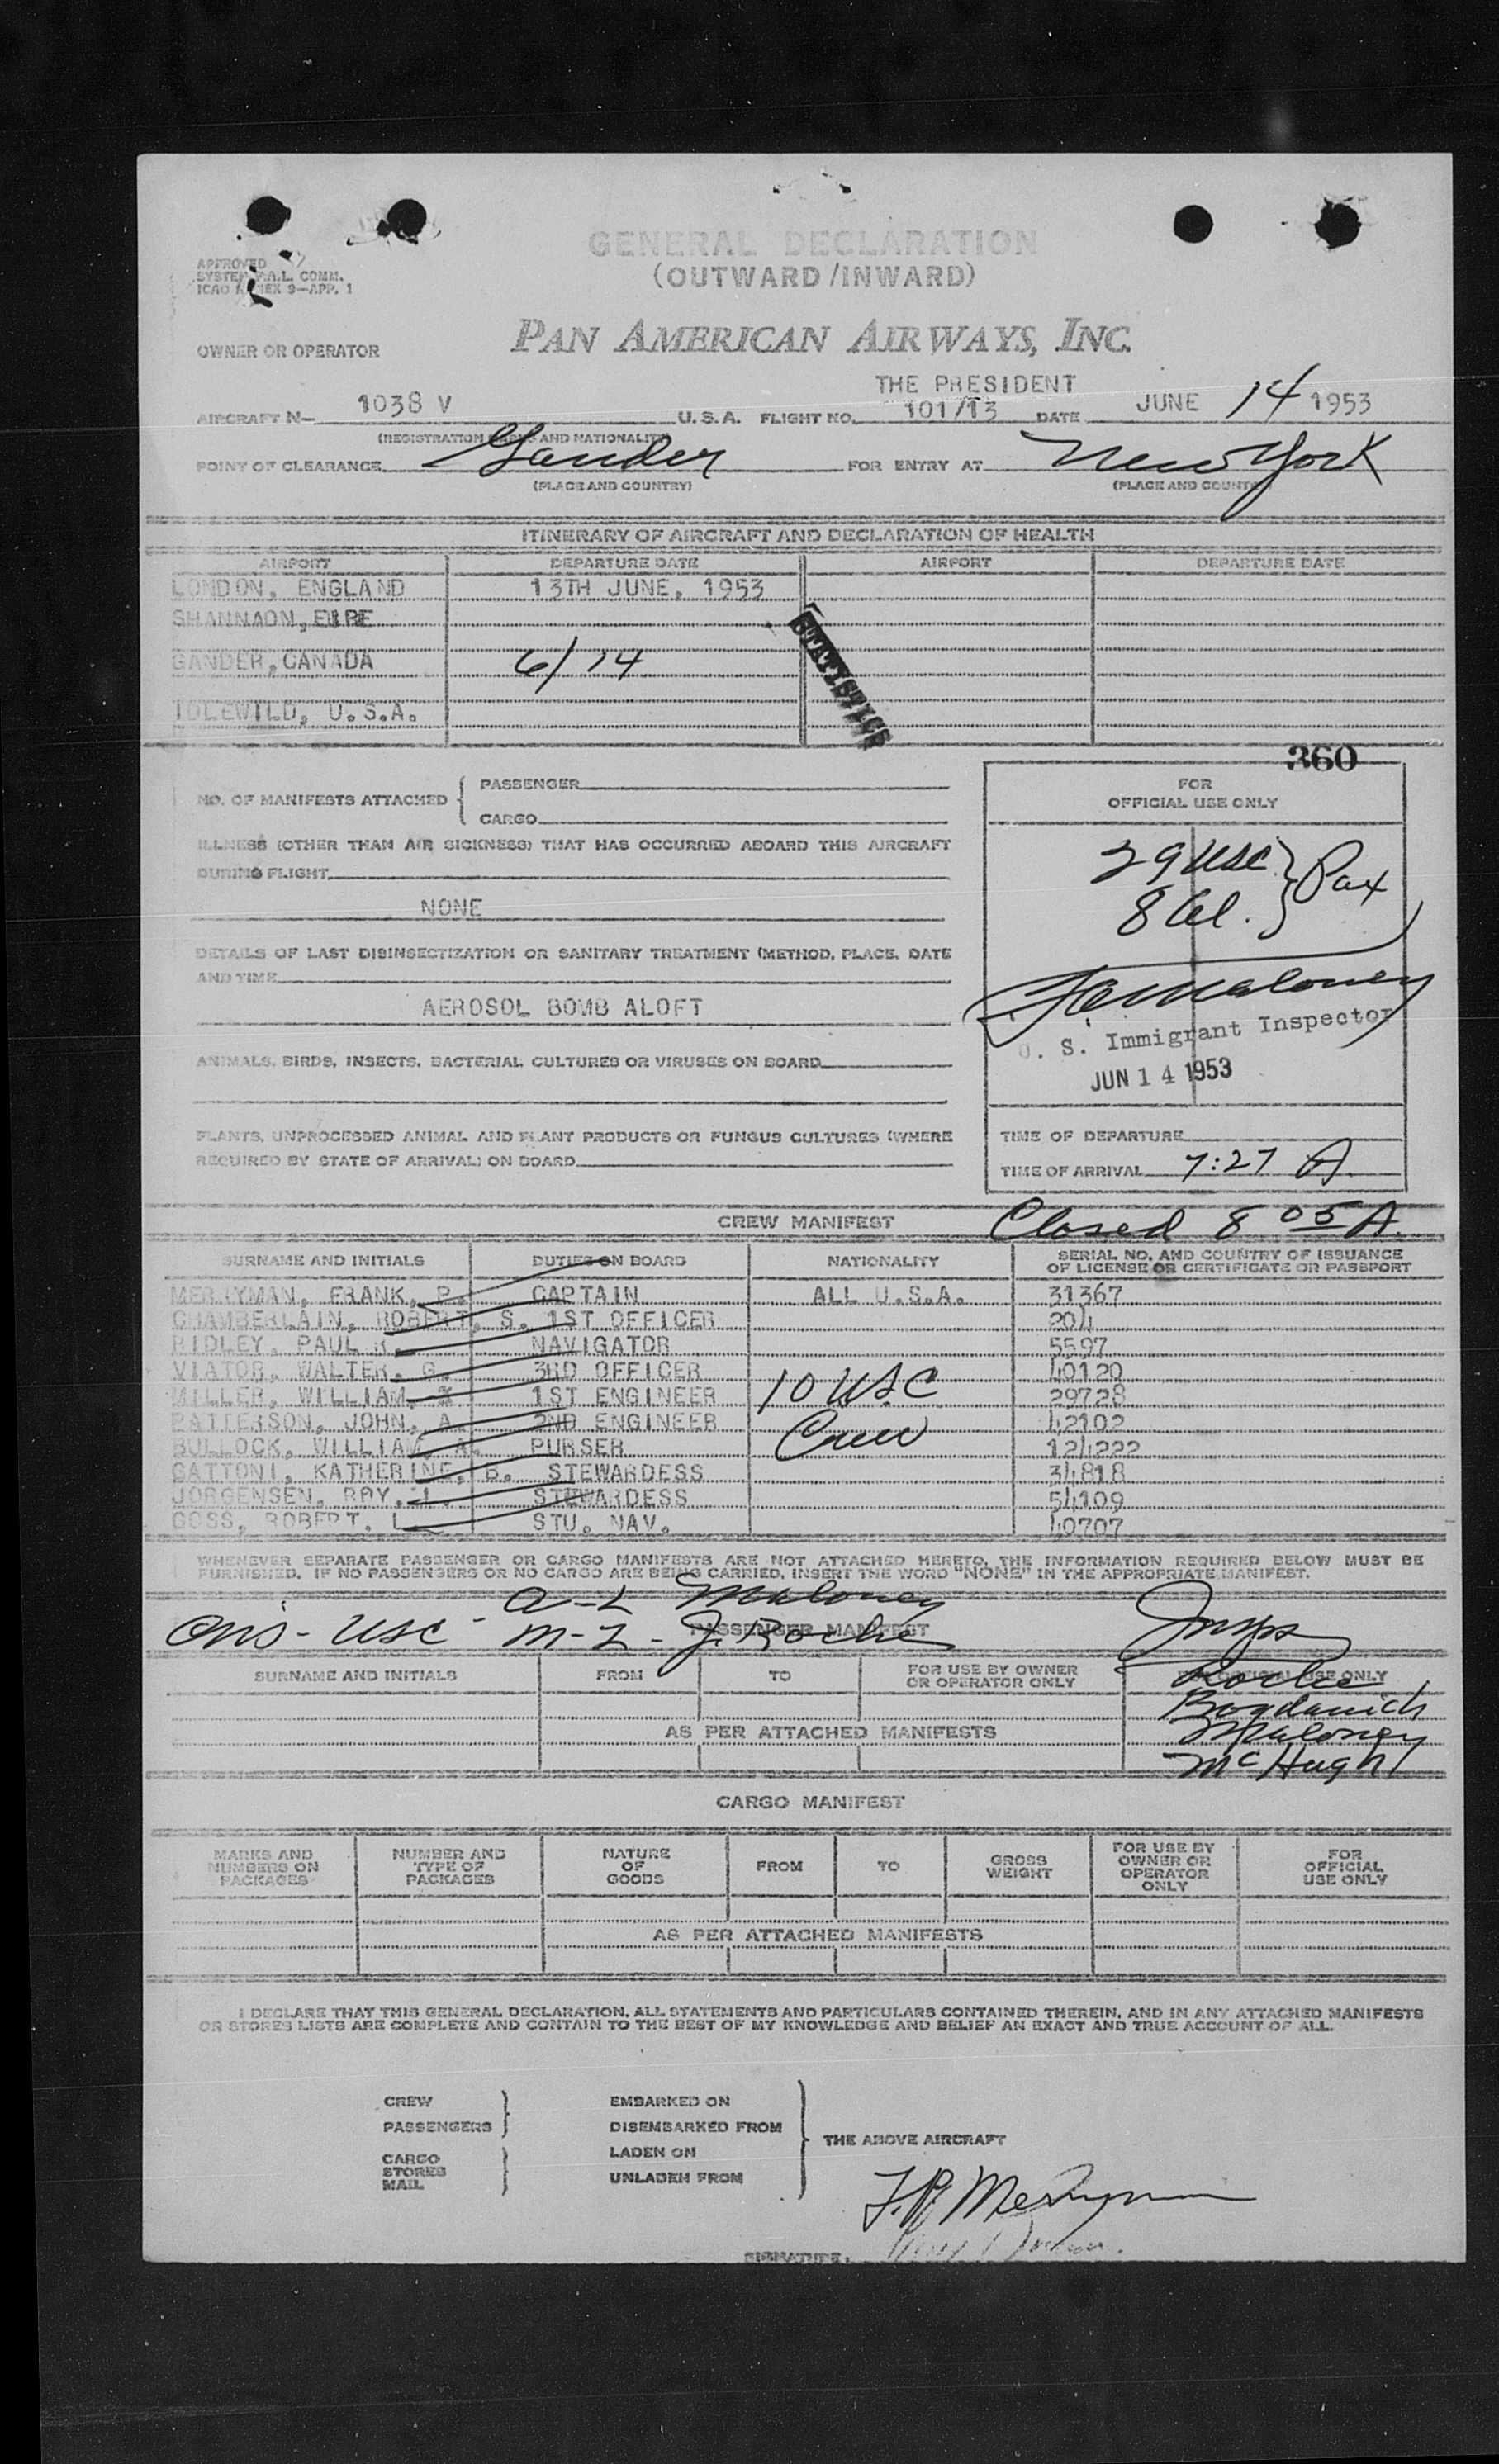 GENERAL DECLARATION
(OUTWARD/INWARD)
APPROVED
SYSTEM P.A.L. COMM.
ICAO ANNEX 9—APP. 1
OWNER OR OPERATOR PAN AMERICAN AIRWAYS, INC.
THE PRESIDENT
AIRCRAFT N— 1038 V U.S.A. FLIGHT NO. 101/13 DATE JUNE 14 1953
(REGISTRATION MARKS AND NATIONALITY)
POINT OF CLEARANCE Gander FOR ENTRY AT New York
(PLACE AND COUNTRY) (PLACE AND COUNTRY)
ITINERARY OF AIRCRAFT AND DECLARATION OF HEALTH
AIRPORT DEPARTURE DATE AIRPORT DEPARTURE DATE
LONDON, ENGLAND 13TH JUNE, 1953
SHANNAON, EIRE
GANDER, CANADA 6/14
IDLEWILD, U.S.A.
STATISTICS
360
NO. OF MANIFESTS ATTACHED { PASSENGER
CARGO
FOR
OFFICIAL USE ONLY
ILLNESS (OTHER THAN AIR SICKNESS) THAT HAS OCCURRED ABOARD THIS AIRCRAFT
DURING FLIGHT
NONE
29 USC } Pax
8 Al.
DETAILS OF LAST DISINSECTIZATION OR SANITARY TREATMENT (METHOD, PLACE, DATE
AND TIME
AEROSOL BOMB ALOFT
Maloney
U. S. Immigrant Inspector
JUN 14 1953
ANIMALS, BIRDS, INSECTS, BACTERIAL CULTURES OR VIRUSES ON BOARD
PLANTS, UNPROCESSED ANIMAL AND PLANT PRODUCTS OR FUNGUS CULTURES (WHERE
REQUIRED BY STATE OF ARRIVAL) ON BOARD
TIME OF DEPARTURE
TIME OF ARRIVAL 7:27 A.
CREW MANIFEST Closed 8 05 A.
SURNAME AND INITIALS DUTIES ON BOARD NATIONALITY SERIAL NO. AND COUNTRY OF ISSUANCE
OF LICENSE OR CERTIFICATE OR PASSPORT
MERRYMAN, FRANK, P. CAPTAIN ALL U.S.A. 31367
CHAMBERLAIN, ROBERT, S. 1ST OFFICER 204
RIDLEY, PAUL R. NAVIGATOR 5597
VIATOR, WALTER, G. 3RD OFFICER 40120
MILLER, WILLIAM 1ST ENGINEER 10 USC 29728
PATTERSON, JOHN, A. 2ND ENGINEER Crew 42102
BULLOCK, WILLIAM, A. PURSER 124222
GATTONI, KATHERINE, B. STEWARDESS 34818
JORGENSEN, RAY, L. STEWARDESS 54109
GOSS, ROBERT, L STU. NAV. 40707
WHENEVER SEPARATE PASSENGER OR CARGO MANIFESTS ARE NOT ATTACHED HERETO, THE INFORMATION REQUIRED BELOW MUST BE
FURNISHED. IF NO PASSENGERS OR NO CARGO ARE BEING CARRIED, INSERT THE WORD "NONE" IN THE APPROPRIATE MANIFEST.
A-L Maloney
USC - M-Z - J. Roche
PASSENGER MANIFEST
Insps
SURNAME AND INITIALS FROM TO FOR USE BY OWNER
OR OPERATOR ONLY FOR OFFICIAL USE ONLY
Roche
Bogdanich
AS PER ATTACHED MANIFESTS Maloney
McHugh
CARGO MANIFEST
MARKS AND
NUMBERS ON
PACKAGES
NUMBER AND
TYPE OF
PACKAGES
NATURE
OF
GOODS
FROM
TO
GROSS
WEIGHT
FOR USE BY
OWNER OR
OPERATOR
ONLY
FOR
OFFICIAL
USE ONLY
AS PER ATTACHED MANIFESTS
I DECLARE THAT THIS GENERAL DECLARATION, ALL STATEMENTS AND PARTICULARS CONTAINED THEREIN, AND IN ANY ATTACHED MANIFESTS
OR STORES LISTS ARE COMPLETE AND CONTAIN TO THE BEST OF MY KNOWLEDGE AND BELIEF AN EXACT AND TRUE ACCOUNT OF ALL.
CREW
PASSENGERS
CARGO
STORES
MAIL
EMBARKED ON
DISEMBARKED FROM
LADEN ON
UNLADEN FROM
THE ABOVE AIRCRAFT
F.P. Merryman
SIGNATURE: